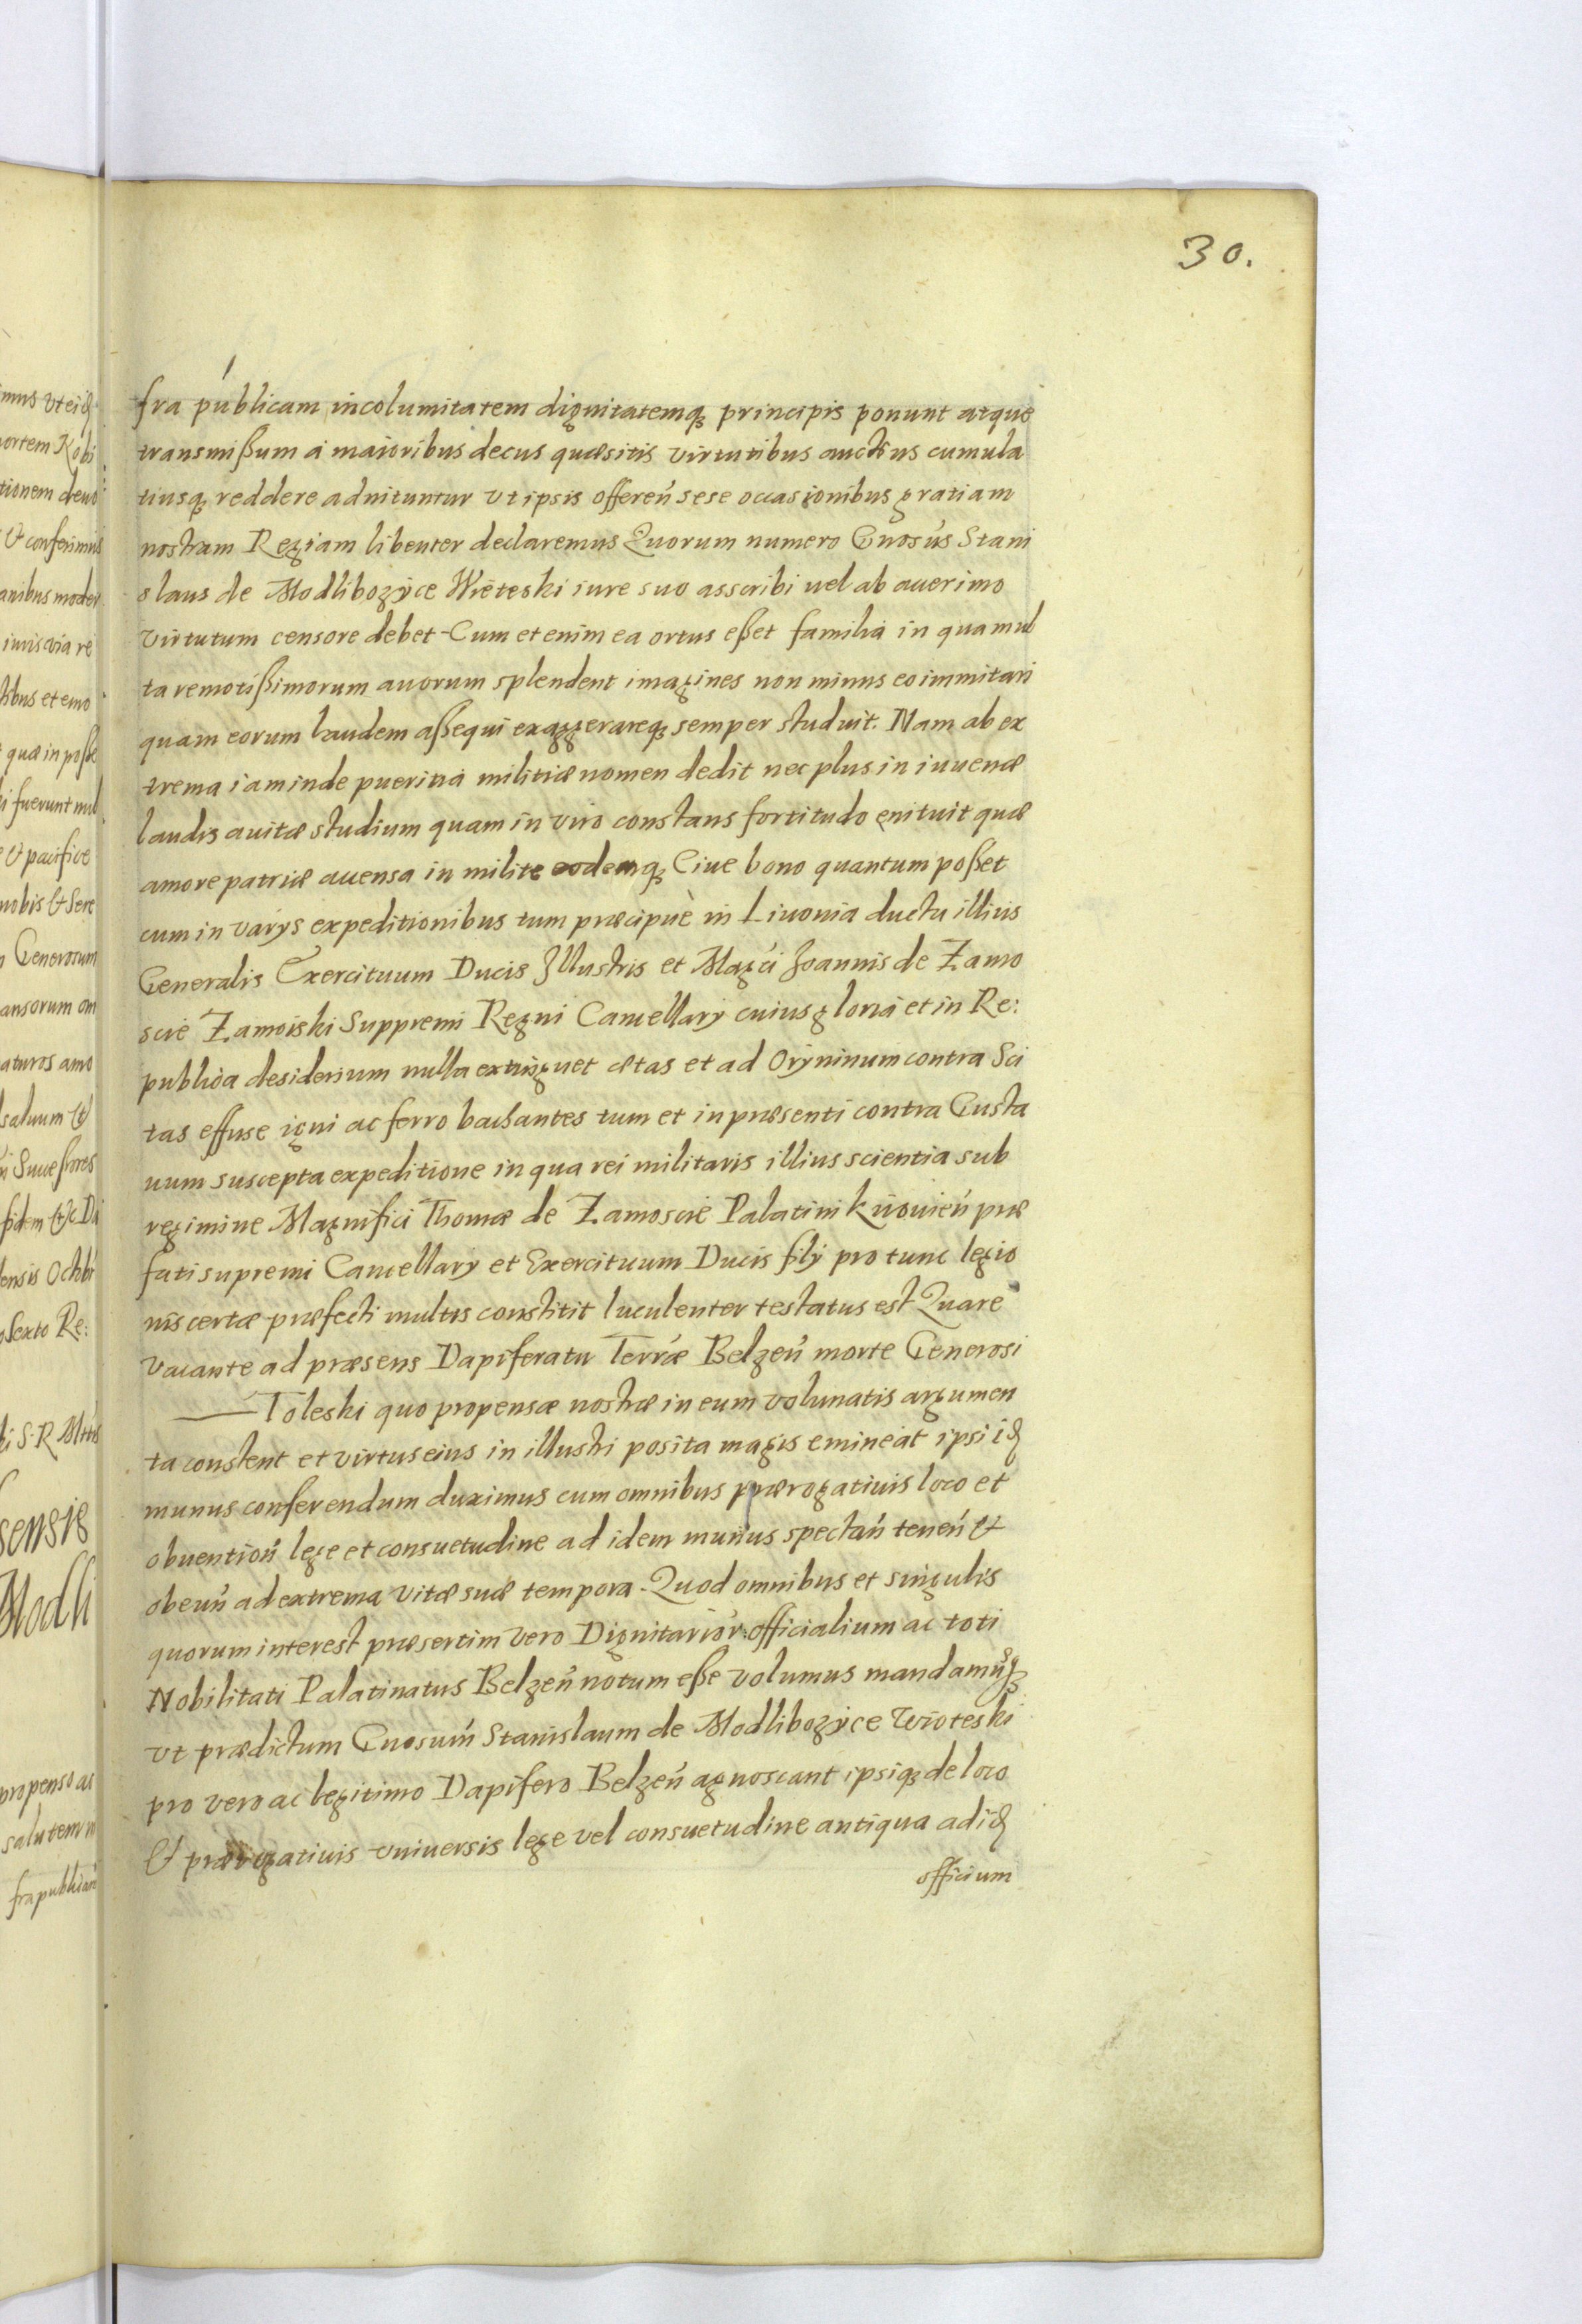 30.
fra publicam incolumitatem dignitatemq; principis ponunt atque
transmißum á maioribus decus quæsitis virtutibus auctius cumula
tiusq; reddere adnituntur vt ipsis offereń sese occasionibus gratiam
nostram Regiam libenter declaremus Quorum numero Gnosús Stani
slaus de Modlibozyce Wieteski iure suo asscribi uel ab acerimo
virtutum censore debet Cum etenim ea ortus eßet familiá in qua mul
ta remotißimorum auorum splendent imagines non minus eo immitari
quam eorum laudem aßequi exaggerareq; semper studuit. Nam ab ex
trema iam inde pueritiá militiæ nomen dedit nec plus in iuuenæ
laudis auitæ studium quam in viro constans fortitudo enituit quæ
amore patriæ accensa in milite eodemq; Ciue bono quantum poßet
cum in varys expeditionibus tum præcipuè in Liuonia ductu illius
Generalis Exercituum Ducis Illustris et Magci Joannis de Zamo
scie Zamoiski Suppremi Regni Cancellary cuius gloriá et in Re:
publica desiderium nulla extinguet ætas et ad Oryninum contra Sci
tas effuse igni ac ferro bachantes tum et in præsenti contra Gusta
uum suscepta expeditione in qua rei militaris illius scientia sub
regimine Magnifici Thomæ de Zamoscie Palatini Kiiouień præ
fati supremi Cancellary et Exercituum Ducis fily pro tunc legio
nis certæ præfecti multis constitit luculenter testatus est Quare
vacante ad præsens Dapiferatu Terræ Belzeń morte Generosi
Toleski quo propensæ nostræ in eum volunatis argumen
ta constent et virtus eius in illustri posita magis emineat ipsi id
munus conferendum duximus cum omnibus prærogatiuis loco et
obuentioń lege et consuetudine ad idem munus spectań teneń &
obeuń ad extrema vitæ suæ tempora. Quod omnibus et singulis
quorum interest præsertim vero Dignitariór: officialium ac toti
Nobilitati Palatinatus Belzeń notum eße volumus mandamúsq;
vt prædictum Gnosum Stanislaum de Modlibozyce Wioteski
pro vero ac legitimo Dapifero Belzeń agnoscant ipsiq; de loco
& prærogatiuis vniuersis lege vel consuetudine antiqua ad id
officium